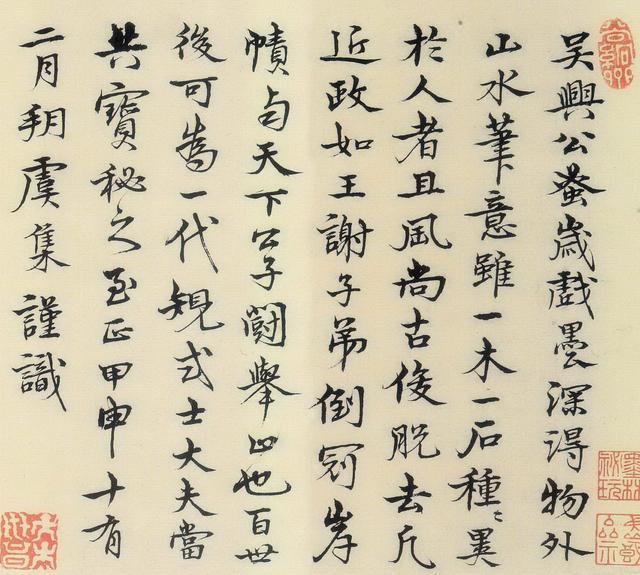 吳興公蚤歲戲墨深得物外
山水筆意雖一木一石種々異
於人者且風尚古俊脫去凡
近政如王謝子弟倒冠岸
幘与天下公子鬪舉止也百世
後可為一代規式士大夫當
共寶秘之至正甲申十有
二月朔虞集謹識
墨林秘玩